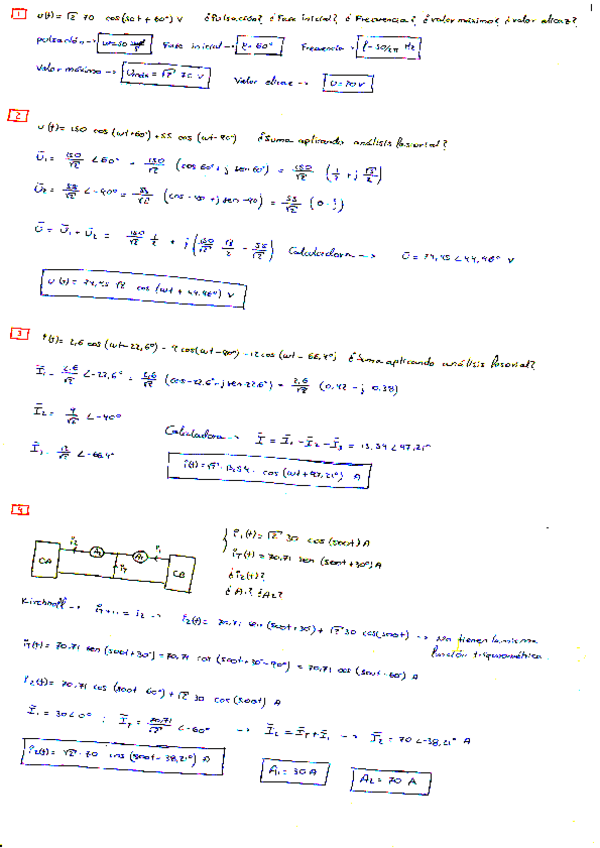 1
1 u(t) = √2 70 cos(50t + 60°) V ¿Pulsación? ¿Fase inicial? ¿Frecuencia? ¿valor máximo? ¿valor eficaz?
pulsación → Fase inicial → φ = 60° Frecuencia → f = 50/2π Hz
Valor máximo → Umáx = √2 70 V Valor eficaz → U = 70 V
2
u(t) = 150 cos (wt+60°) + 55 cos (wt-90°) ¿Suma aplicando análisis fasorial?
Ū₁ = 150/√2 ∠60° = 150/√2 (cos 60° + j sen 60°) = 150/√2 (1/2 + j √3/2)
Ū₂ = 55/√2 ∠-90° = 55/√2 (cos -90 + j sen -90) = 55/√2
Ū = Ū₁ + Ū₂ = 150/√2 1/2 + j (150/√2 √3/2 - 55/√2) Calculadora → Ū = 74,45 ∠44,46° V
u(t) = 74,45 √2 cos (wt + 44,46°) V
3
cos(wt-22,6°) cos(wt-90°) - 12 cos(wt - 66,4°) ¿Suma aplicando análisis fasorial?
Ī₁ = 2,6/√2 ∠-22,6° = 2,6/√2 (cos-22,6° - j sen 22,6°) = 2,6/√2
Ī₂ =
Ī₃ = 12/√2 ∠-66,4°
Calculadora → Ī = Ī₁ - Ī₂ - Ī₃ = 13,54 ∠47,21°
i(t) = √2 · 13,54 · cos (wt + 47,21°) A
4
CA CB
i₁(t) = √2 30 cos (500t) A
iT(t) = 70,71 sen (500t + 30°) A
¿i₂(t)?
¿A₁? ¿A₂?
Kirchhoff → iT + i₁ = i₂ → i₂(t) = 70,71 sen (500t + 30°) + √2 30 cos(500t) → No tienen la misma
función trigonométrica.
iT(t) = 70,71 sen (500t + 30°) = 70,71 cos (500t + 30° - 90°) = 70,71 cos (500t - 60°) A
i₂(t) = 70,71 cos (500t - 60°) + √2 30 cos (500t) A
Ī₁ = 30∠0° ; ĪT = 70,71/√2 ∠-60° → Ī₂ = ĪT + Ī₁ → Ī₂ = 70 ∠-38,21° A
i₂(t) = √2 · 70 cos (500t - 38,21°) A A₁ = 30 A A₂ = 70 A